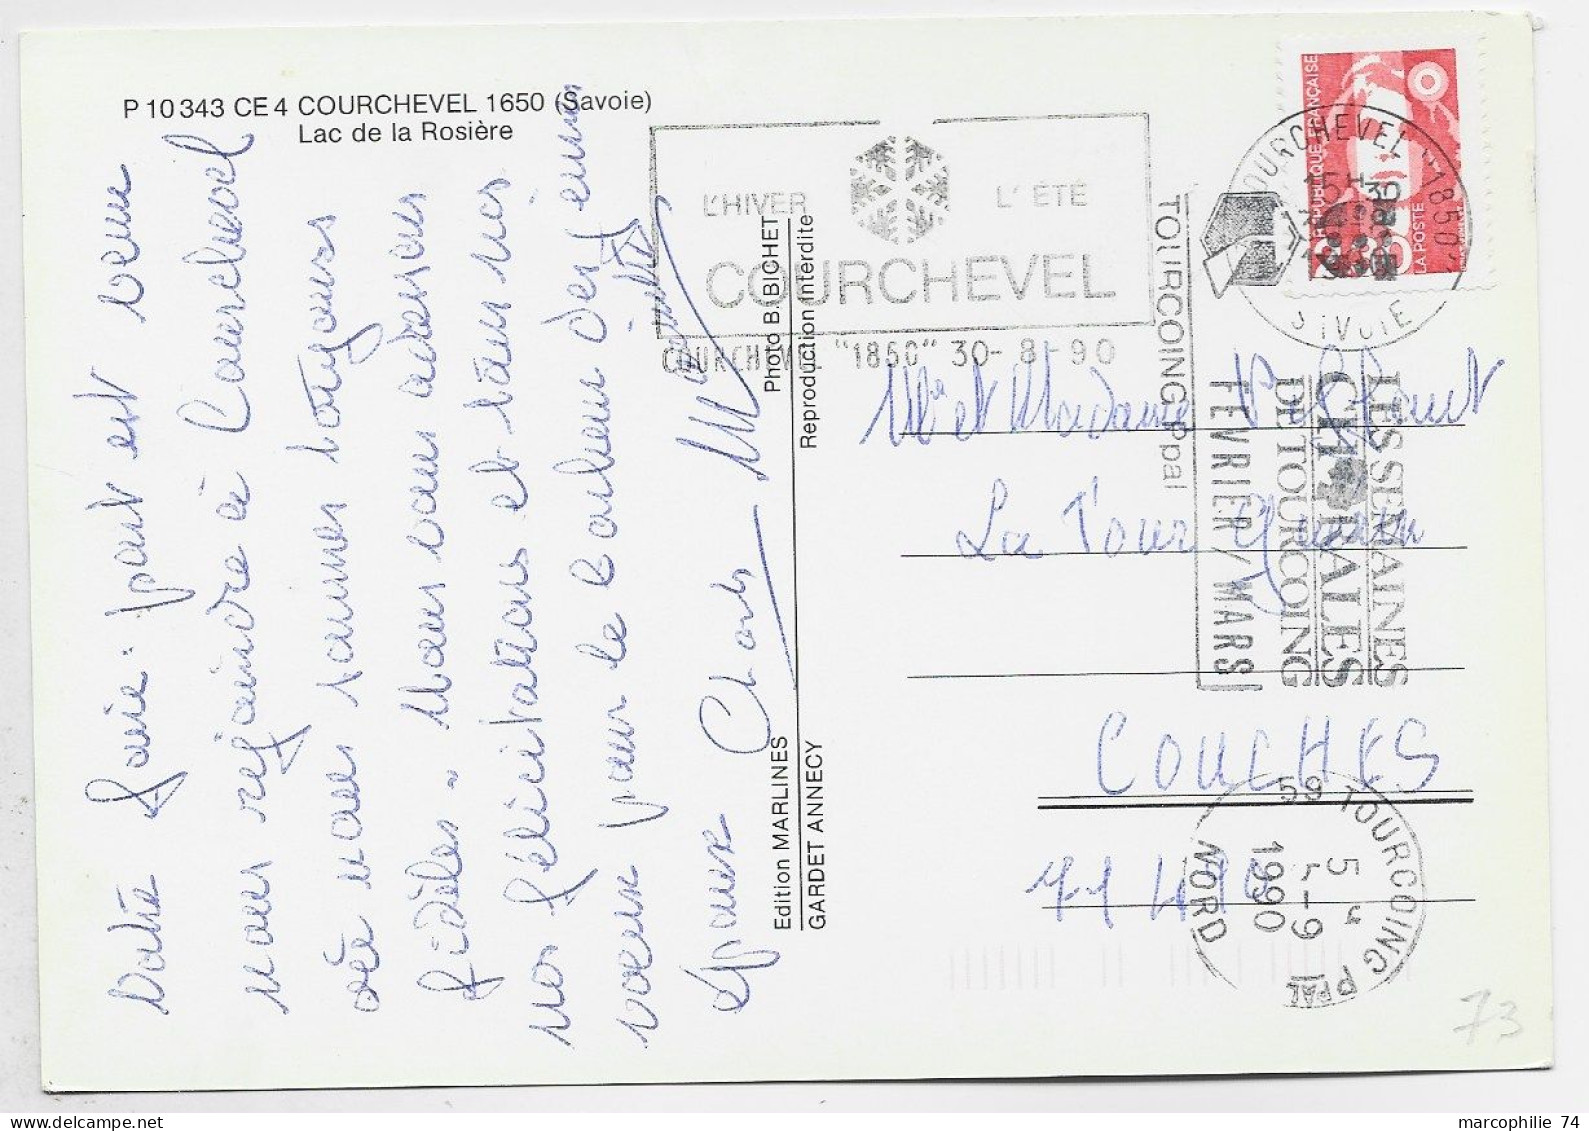 P 10 343 CE 4 COURCHEVEL 1650 (Savoie)
Lac de la Rosière
L'HIVER L'ÉTÉ
COURCHEVEL
COURCHEVEL "1850" 30-8-90
COURCHEVEL "1850"
SAVOIE
RÉPUBLIQUE FRANÇAISE
LA POSTE
TOURCOING Ppal
LES SEMAINES
CHORALES
DE TOURCOING
FEVRIER/MARS
Votre faire-part est venu
nous rejoindre à Courchevel
où nous sommes toujours
fidèles. Nous vous adressons
nos félicitations et tous nos
voeux pour le bonheur des jeunes
époux
Photo B. BICHET
Reproduction interdite
Edition MARLINES
GARDET ANNECY
Mr et Madame
La Tour
COUCHES
71490
59 TOURCOING PPAL
5-9
1990
NORD
73
marcophilie 74